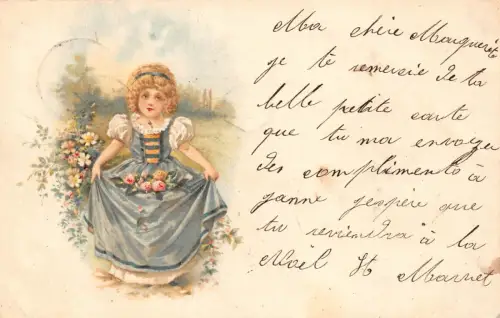 Ma chère Marguerite
je te remersie de ta
belle petite carte
que tu ma envoyer
des compliments à
janne jespère que
tu reviendra à la
Noël